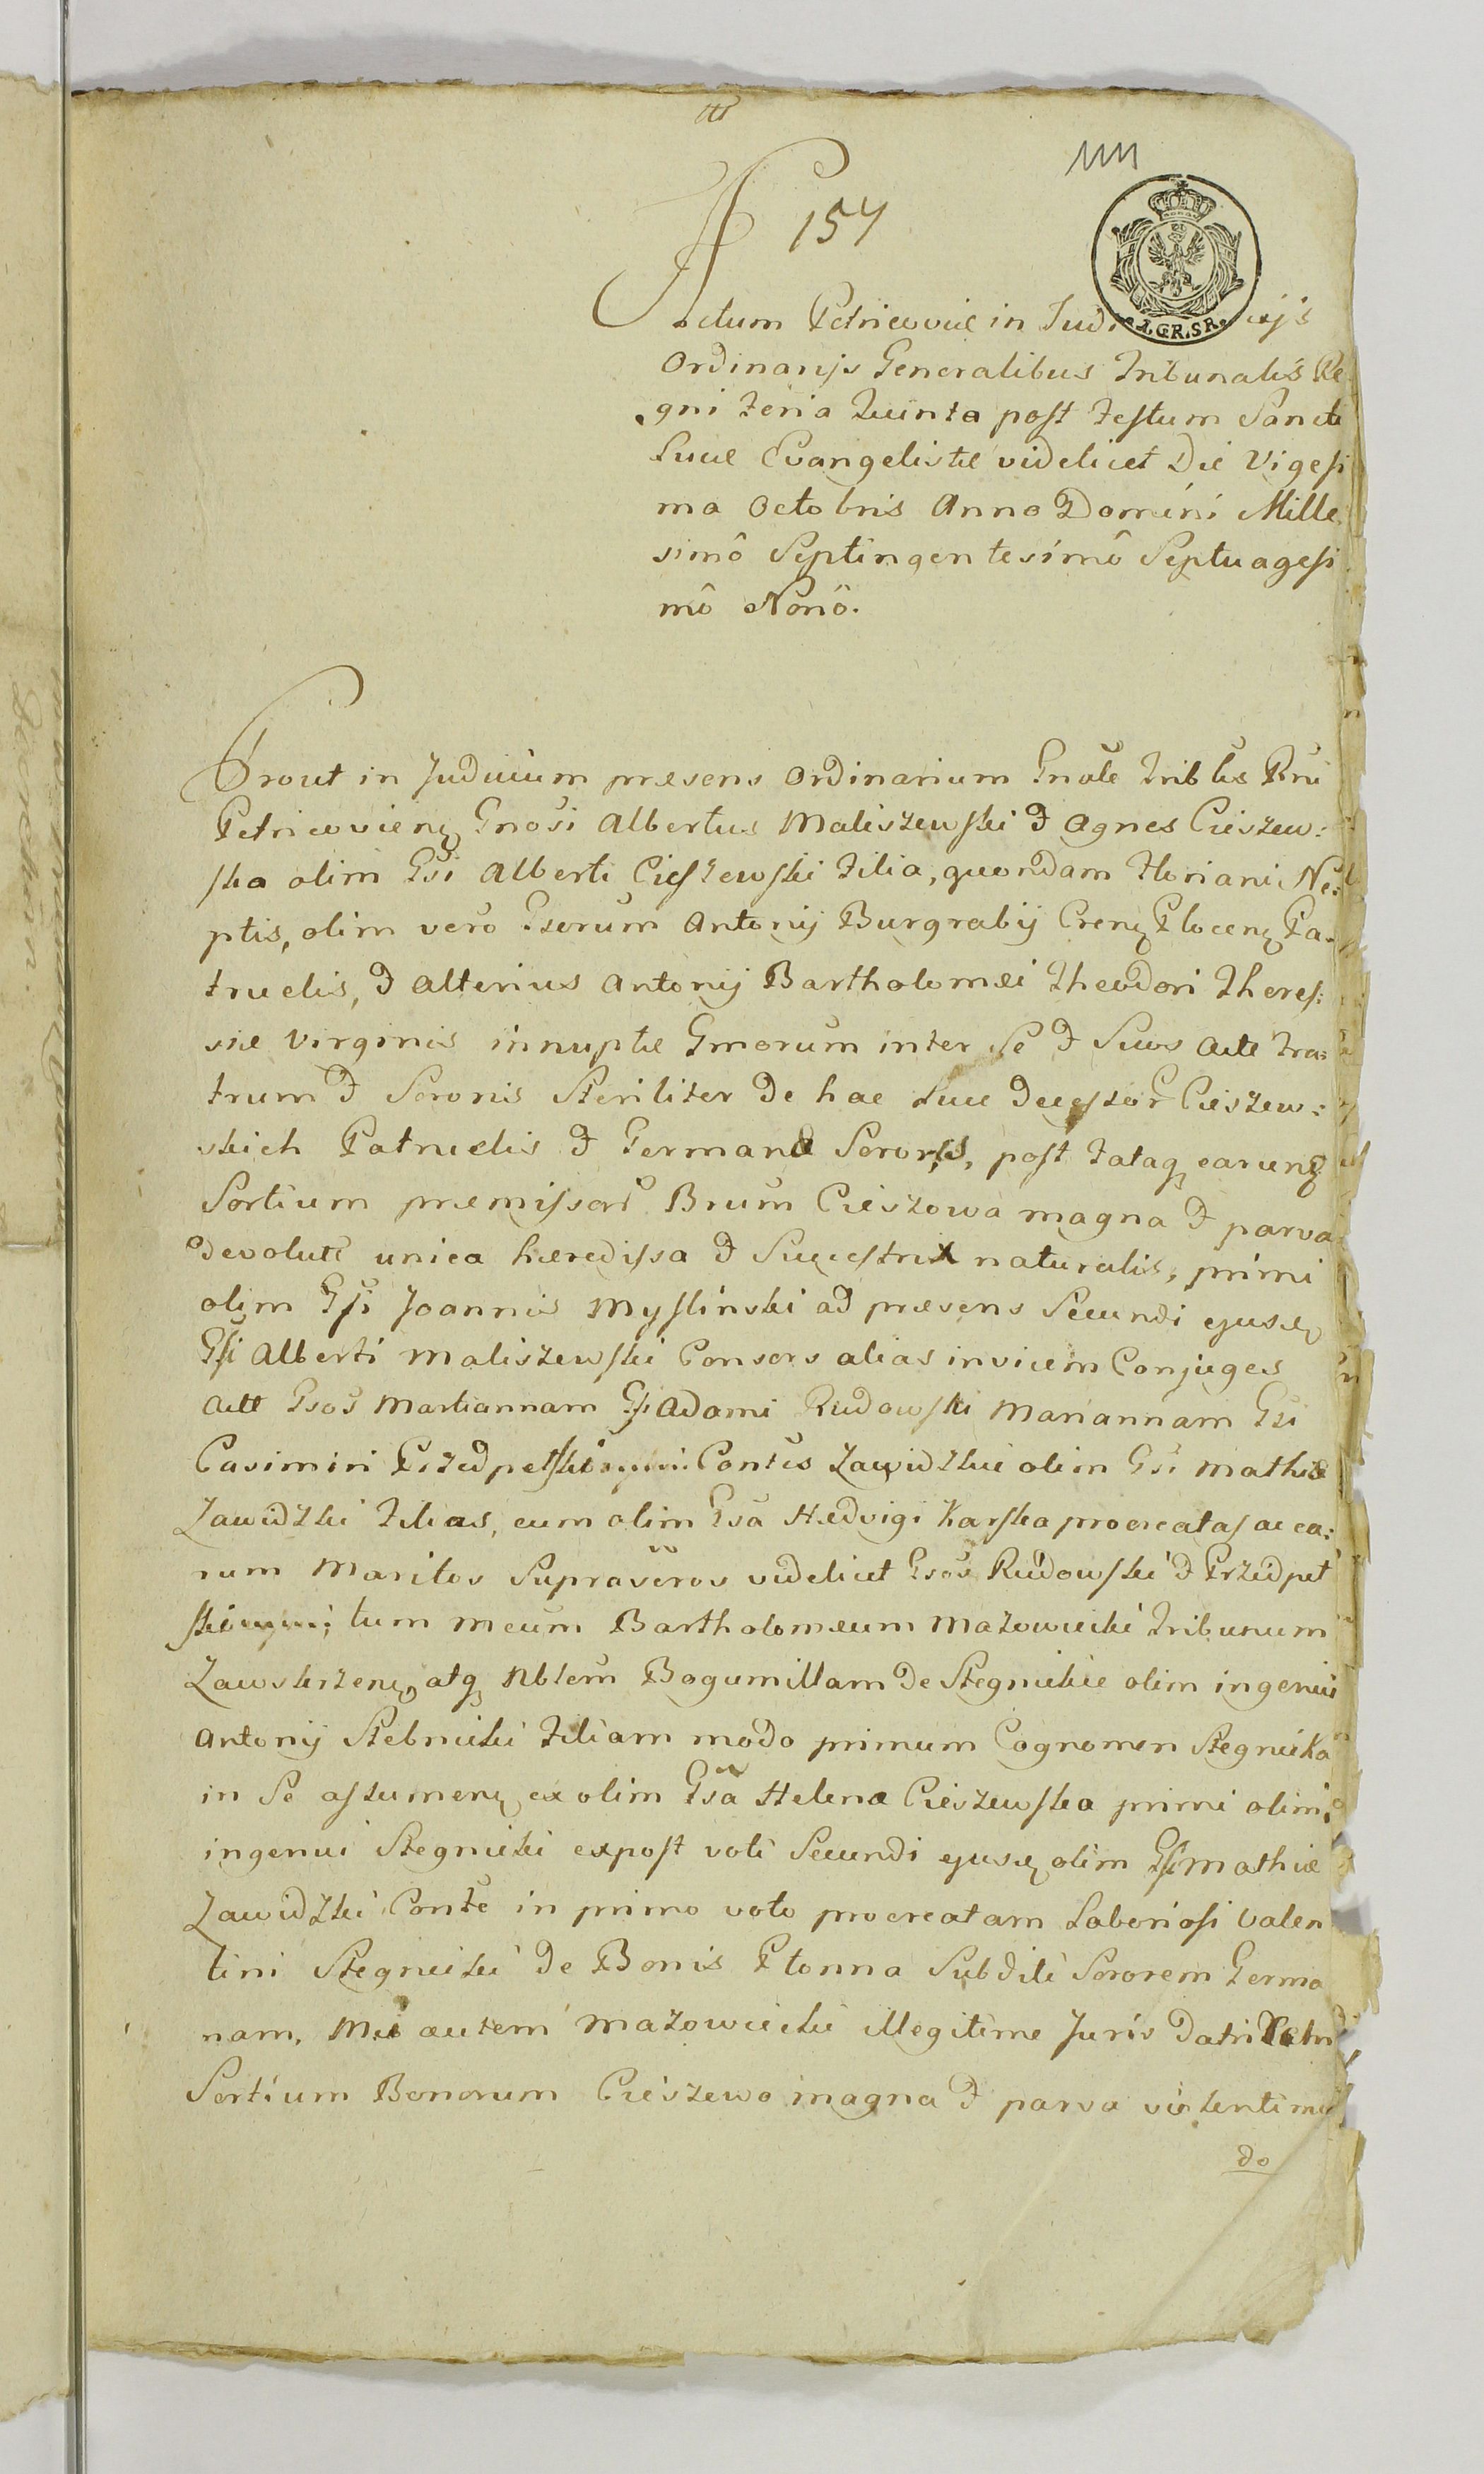 157
J.GR.SR.
Actum Petricoviæ in Judi
Ordinarijs Generalibus Tribunalis Re
gni Feria Quinta post Festum Sancti
Lucæ Evangelistæ videlicet Die Vigesi
ma Octobris Anno Domini Mille
simô Septingentesimô Septuagesi
mô Nonô.
Prout in Judicium præsens Ordinarium Gnäle Triblis Rni
Petricovien Gnosi Albertus Maliszewski & Agnes Cieszew:
ska olim Gsi Alberti Cieszewski Filia, quondam Floriani Ne:
ptis, olim vero Gsorum Antonij Burgrabij Cren Plocen Pa:
truelis, & Alterius Antonij Bartholomæi Theodori Theres:
siæ Virginis innuptæ Gmorum inter Se & Suos Acte Fra:
trum & Sororis Steriliter de hac Luce Decessor Cieszew:
skich Patruelis & Germana Soror, post Fataq earund
Sortium præmissor Brum Cieszowa magna & parva
devolute unica hæredissa & Successtrix naturalis, primi
olim Gsi Joannis Myslinski ad præsens Secundi ejusd
Gsi Alberti Maliszewski Consors alias invicem Conjuges
Acte Gsos Martiannam Gsi Adami Rudowski Mariannam Gsi
Casimiri Przedpelski Contes Zawidzkie olim Gsi Mathiæ
Zawidzki Filias, cum olim Gsa Hedvigi Karska procreatas ac ea:
rum Maritos Supraseros videlicet Gsos Rudowski & Przedpel
ski tum meum Bartholomæum Mazowiecki Tribunum
Zawskrzen, atq Nblem Bogumillam de Stegnickie olim ingenui
Antonij Stebnicki Filiam modo primum Cognomen Stegnicka
in Se assumen, ex olim Gsa Helena Cieszewska primi olim
ingenui Stegnicki expost voti Secundi ejusd olim Gsi Mathiæ
Zawidzki Conte in primo voto procreatam Laboriosi Valen
tini Stegnicki de Bonis Plonna Subditi Sororem Germa
nam, Me autem Mazowiecki illegitime Juris Datri
Sortium Bonorum Cieszewo magna & parva violentime
do